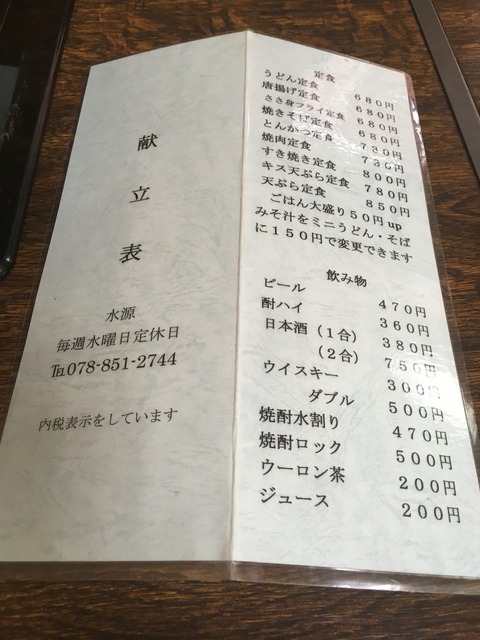 献立表
水源
毎週水曜日定休日
℡078-851-2744
内税表示をしています
定食
うどん定食 680円
唐揚げ定食 680円
ささ身フライ定食 680円
焼きそば定食 680円
とんかつ定食 730円
焼肉定食 730円
すき焼き定食 800円
キス天ぷら定食 780円
天ぷら定食 850円
ごはん大盛り50円up
みそ汁をミニうどん・そば
に150円で変更できます
飲み物
ビール 470円
酎ハイ 360円
日本酒（1合） 380円
（2合） 750円
ウイスキー 300円
ダブル 500円
焼酎水割り 470円
焼酎ロック 500円
ウーロン茶 200円
ジュース 200円